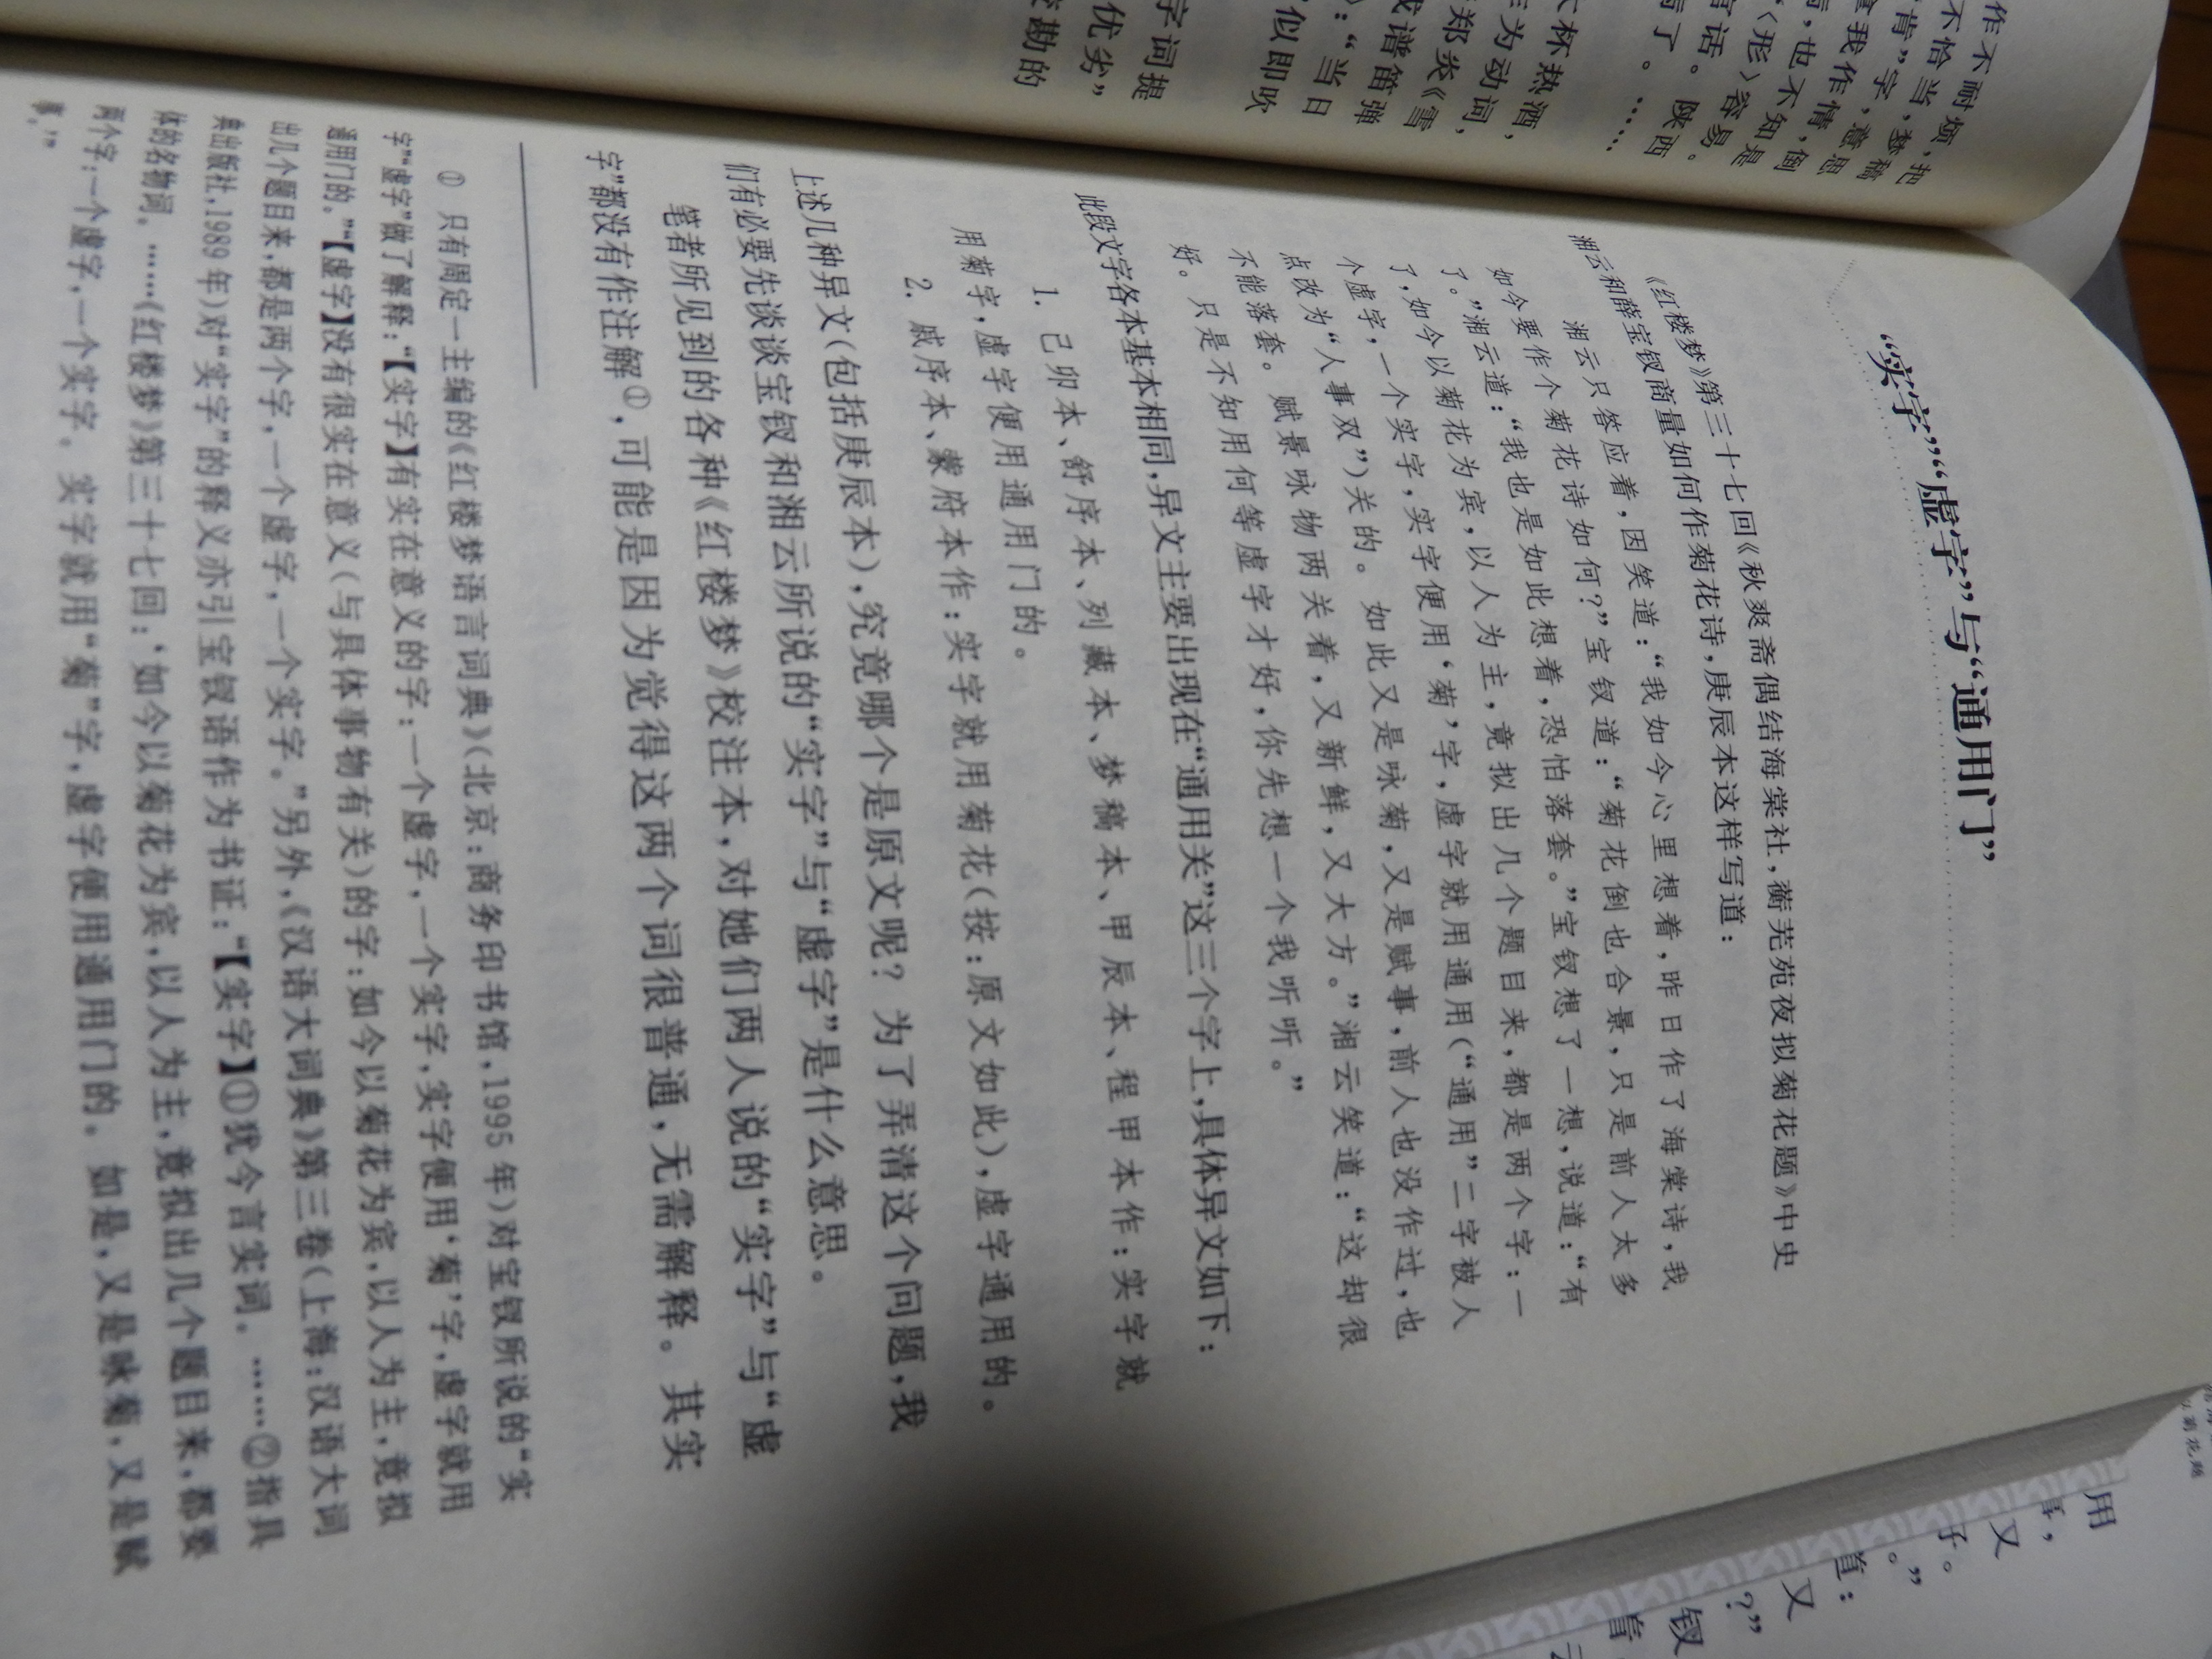 作不不耐烦,把
不恰当,梦稿
肯”字,意思
我作情,倒
,也不知是
“〈形〉容易。
言话。陕西
有了。……
大杯热酒,
作为动词,
郑炎《雪
戏谱笛弹
):“当日
似即吹
字词提
优劣”
校勘的
“实字”“虚字”与“通用门”
《红楼梦》第三十七回《秋爽斋偶结海棠社,蘅芜苑夜拟菊花题》中史
湘云和薛宝钗商量如何作菊花诗,庚辰本这样写道:
湘云只答应着,因笑道:“我如今心里想着,昨日作了海棠诗,我
如今要作个菊花诗如何?”宝钗道:“菊花倒也合景,只是前人太多
了。”湘云道:“我也是如此想着,恐怕落套。”宝钗想了一想,说道:“有
了,如今以菊花为宾,以人为主,竟拟出几个题目来,都是两个字:一
个虚字,一个实字,实字便用‘菊’字,虚字就用通用(“通用”二字被人
点改为“人事双”)关的。如此又是咏菊,又是赋事,前人也没作过,也
不能落套。赋景咏物两关着,又新鲜,又大方。”湘云笑道:“这却很
好。只是不知用何等虚字才好,你先想一个我听听。”
此段文字各本基本相同,异文主要出现在“通用关”这三个字上,具体异文如下:
1. 己卯本、舒序本、列藏本、梦稿本、甲辰本、程甲本作:实字就
用菊字,虚字便用通用门的。
2. 戚序本、蒙府本作:实字就用菊花(按:原文如此),虚字通用的。
上述几种异文(包括庚辰本),究竟哪个是原文呢?为了弄清这个问题,我
们有必要先谈谈宝钗和湘云所说的“实字”与“虚字”是什么意思。
笔者所见到的各种《红楼梦》校注本,对她们两人说的“实字”与“虚
字”都没有作注解①,可能是因为觉得这两个词很普通,无需解释。其实
① 只有周定一主编的《红楼梦语言词典》(北京:商务印书馆,1995年)对宝钗所说的“实
字”“虚字”做了解释:“【实字】有实在意义的字:一个虚字,一个实字,实字便用‘菊’字,虚字就用
通用门的。”“【虚字】没有很实在意义(与具体事物有关)的字:如今以菊花为宾,以人为主,竟拟
出几个题目来,都是两个字,一个虚字,一个实字。”另外,《汉语大词典》第三卷(上海:汉语大词
典出版社,1989年)对“实字”的释义亦引宝钗语作为书证:“【实字】①犹今言实词。……②指具
体的名物词。……《红楼梦》第三十七回:‘如今以菊花为宾,以人为主,竟拟出几个题目来,都要
两个字:一个虚字,一个实字。实字就用“菊”字,虚字便用通用门的。如是,又是咏菊,又是赋
事。’”
用
事,
又
子。
。”
道:
又
?”
钗
着